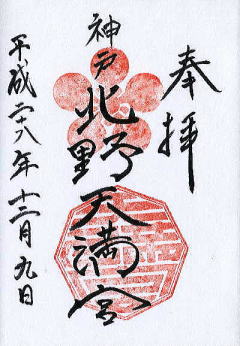 奉拝
神戸
北野天満宮
平成二十八年十二月九日